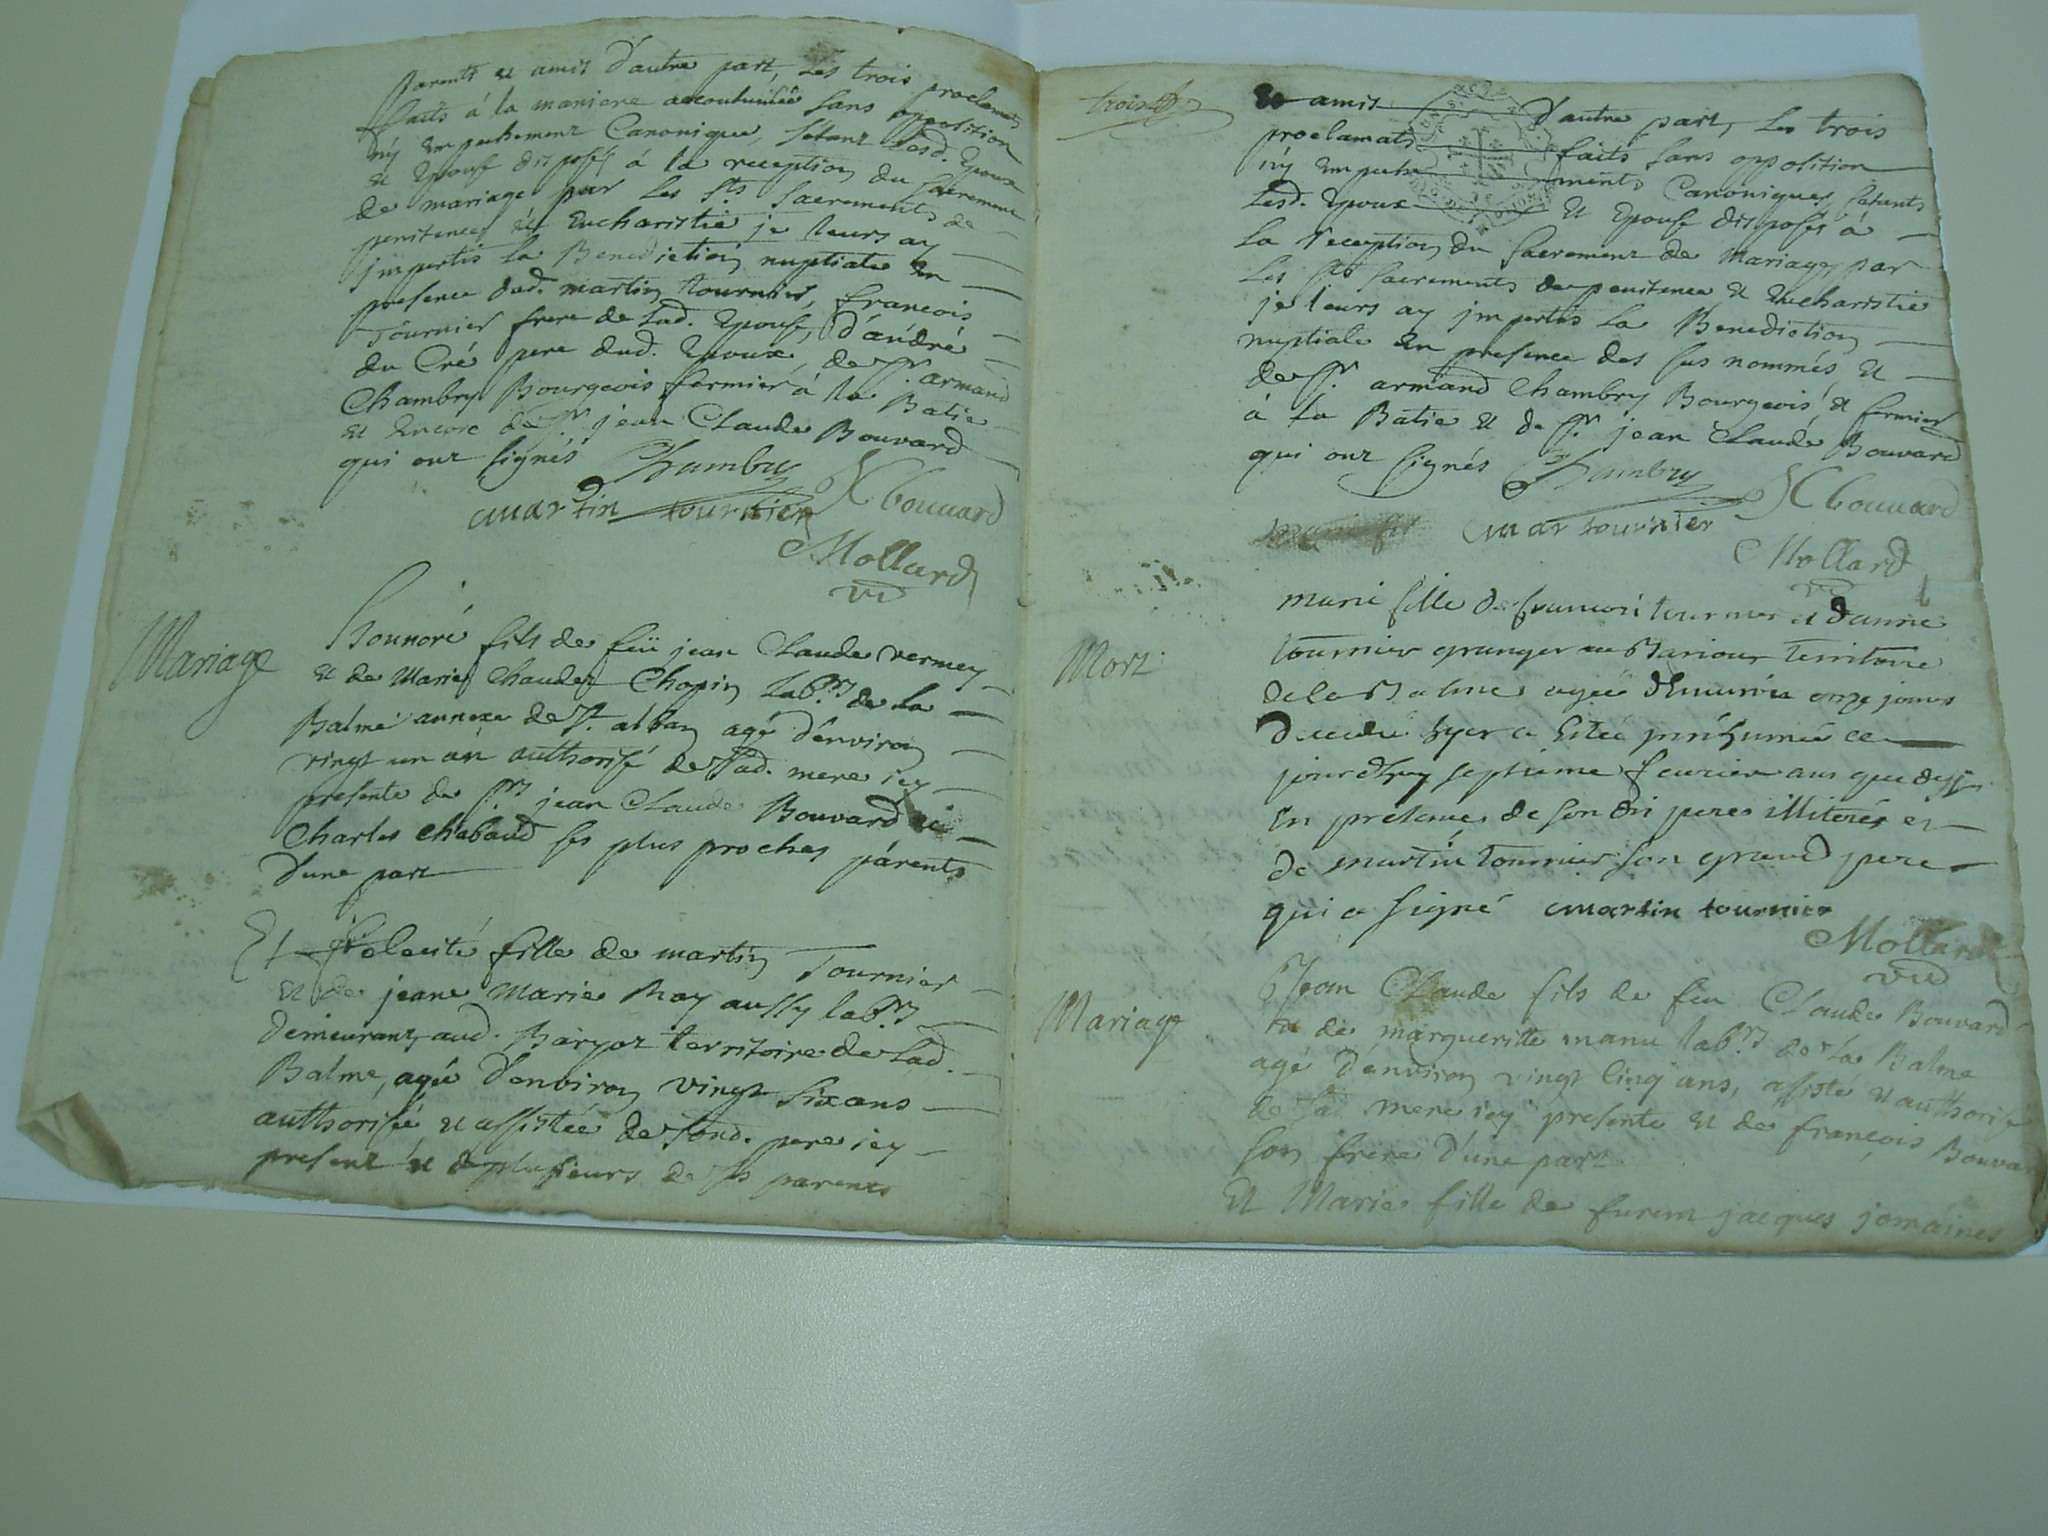 Parents et amis d'autre part, Les trois proclamats
faits á la maniere accoutumée sans opposition
ny empechement Canonique, s'etant lesd. Epoux
et Epouse disposés á la reception du Sacrement
de mariage par les Sts Sacrements de
penitence et Eucharistie je leurs ay
jmpertis la Benediction nuptiale en
presence dud. martin tournier, francois
Tournier frere de lad. Epouse, d'andré
du Cré pere dud. Epoux, de Sr. armand
Chambry Bourgeois fermier á la Batie
et Encore de Sr jean Claude Bouvard
qui ont signés Chambry
martin tournier JC bouuard
Mollard
vic
Mariage
honnoré fils de feü jean Claude vermey
et de Marie Chaudet Chopin lab.rs de la
Balme annexe de St. alban agé d'environ
vingt un an authorisé de Sad. mere icy
presente de Srs jean Claude Bouvard et
Charles Chabaud ses plus proches párents
d'une part
Et felicité fille de martin Tournier
et de jeane Marie Ray aussy lab.rs
demeurant aud. Bariot territoire de lad.
Balme, agée d'environ vingt six ans
authorisée et assistée de Sond. pere icy
present et de plusieurs de ses parents
trois
et amis d'autre part, Les trois
proclamats faits sans opposition
ny empeche ments Canoniques, s'etants
lesd. Epoux et Epouse disposés á
la reception du Sacrement de Mariage par
les Sts Sacrements de penitence et Eucharistie
je leurs ay jmpertis la Benediction
nuptiale en presence des sus nommés et
de Sr. armand Chambry Bourgeois et fermier
á la Batie et de Sr. jean Claude Bouvard
qui ont signés Chambry JC bouuard
mar tournier
Mollard
vic
Mort
marie fille de francois tournier et d'anne
tournier granger au Bariout territoire
de la Balme agée d'environ onze jours
decedée hyer a Estée jnhumée ce
jourdhuy septieme feurier ans que dessus
En presence de son dit pere illiteré et
de martin tournier son grand pere
qui a signé martin tournier
Mollard
vic
Mariage
Jean Claude fils de feu Claude Bouvard
et de margueritte manu lab.rs de la Balme
agé d'environ vingt cinq ans, assisté et authorisé
de Sa mere icy presente et de francois Bouvard
son frere d'une part
et Marie fille de furent jacques jomaines